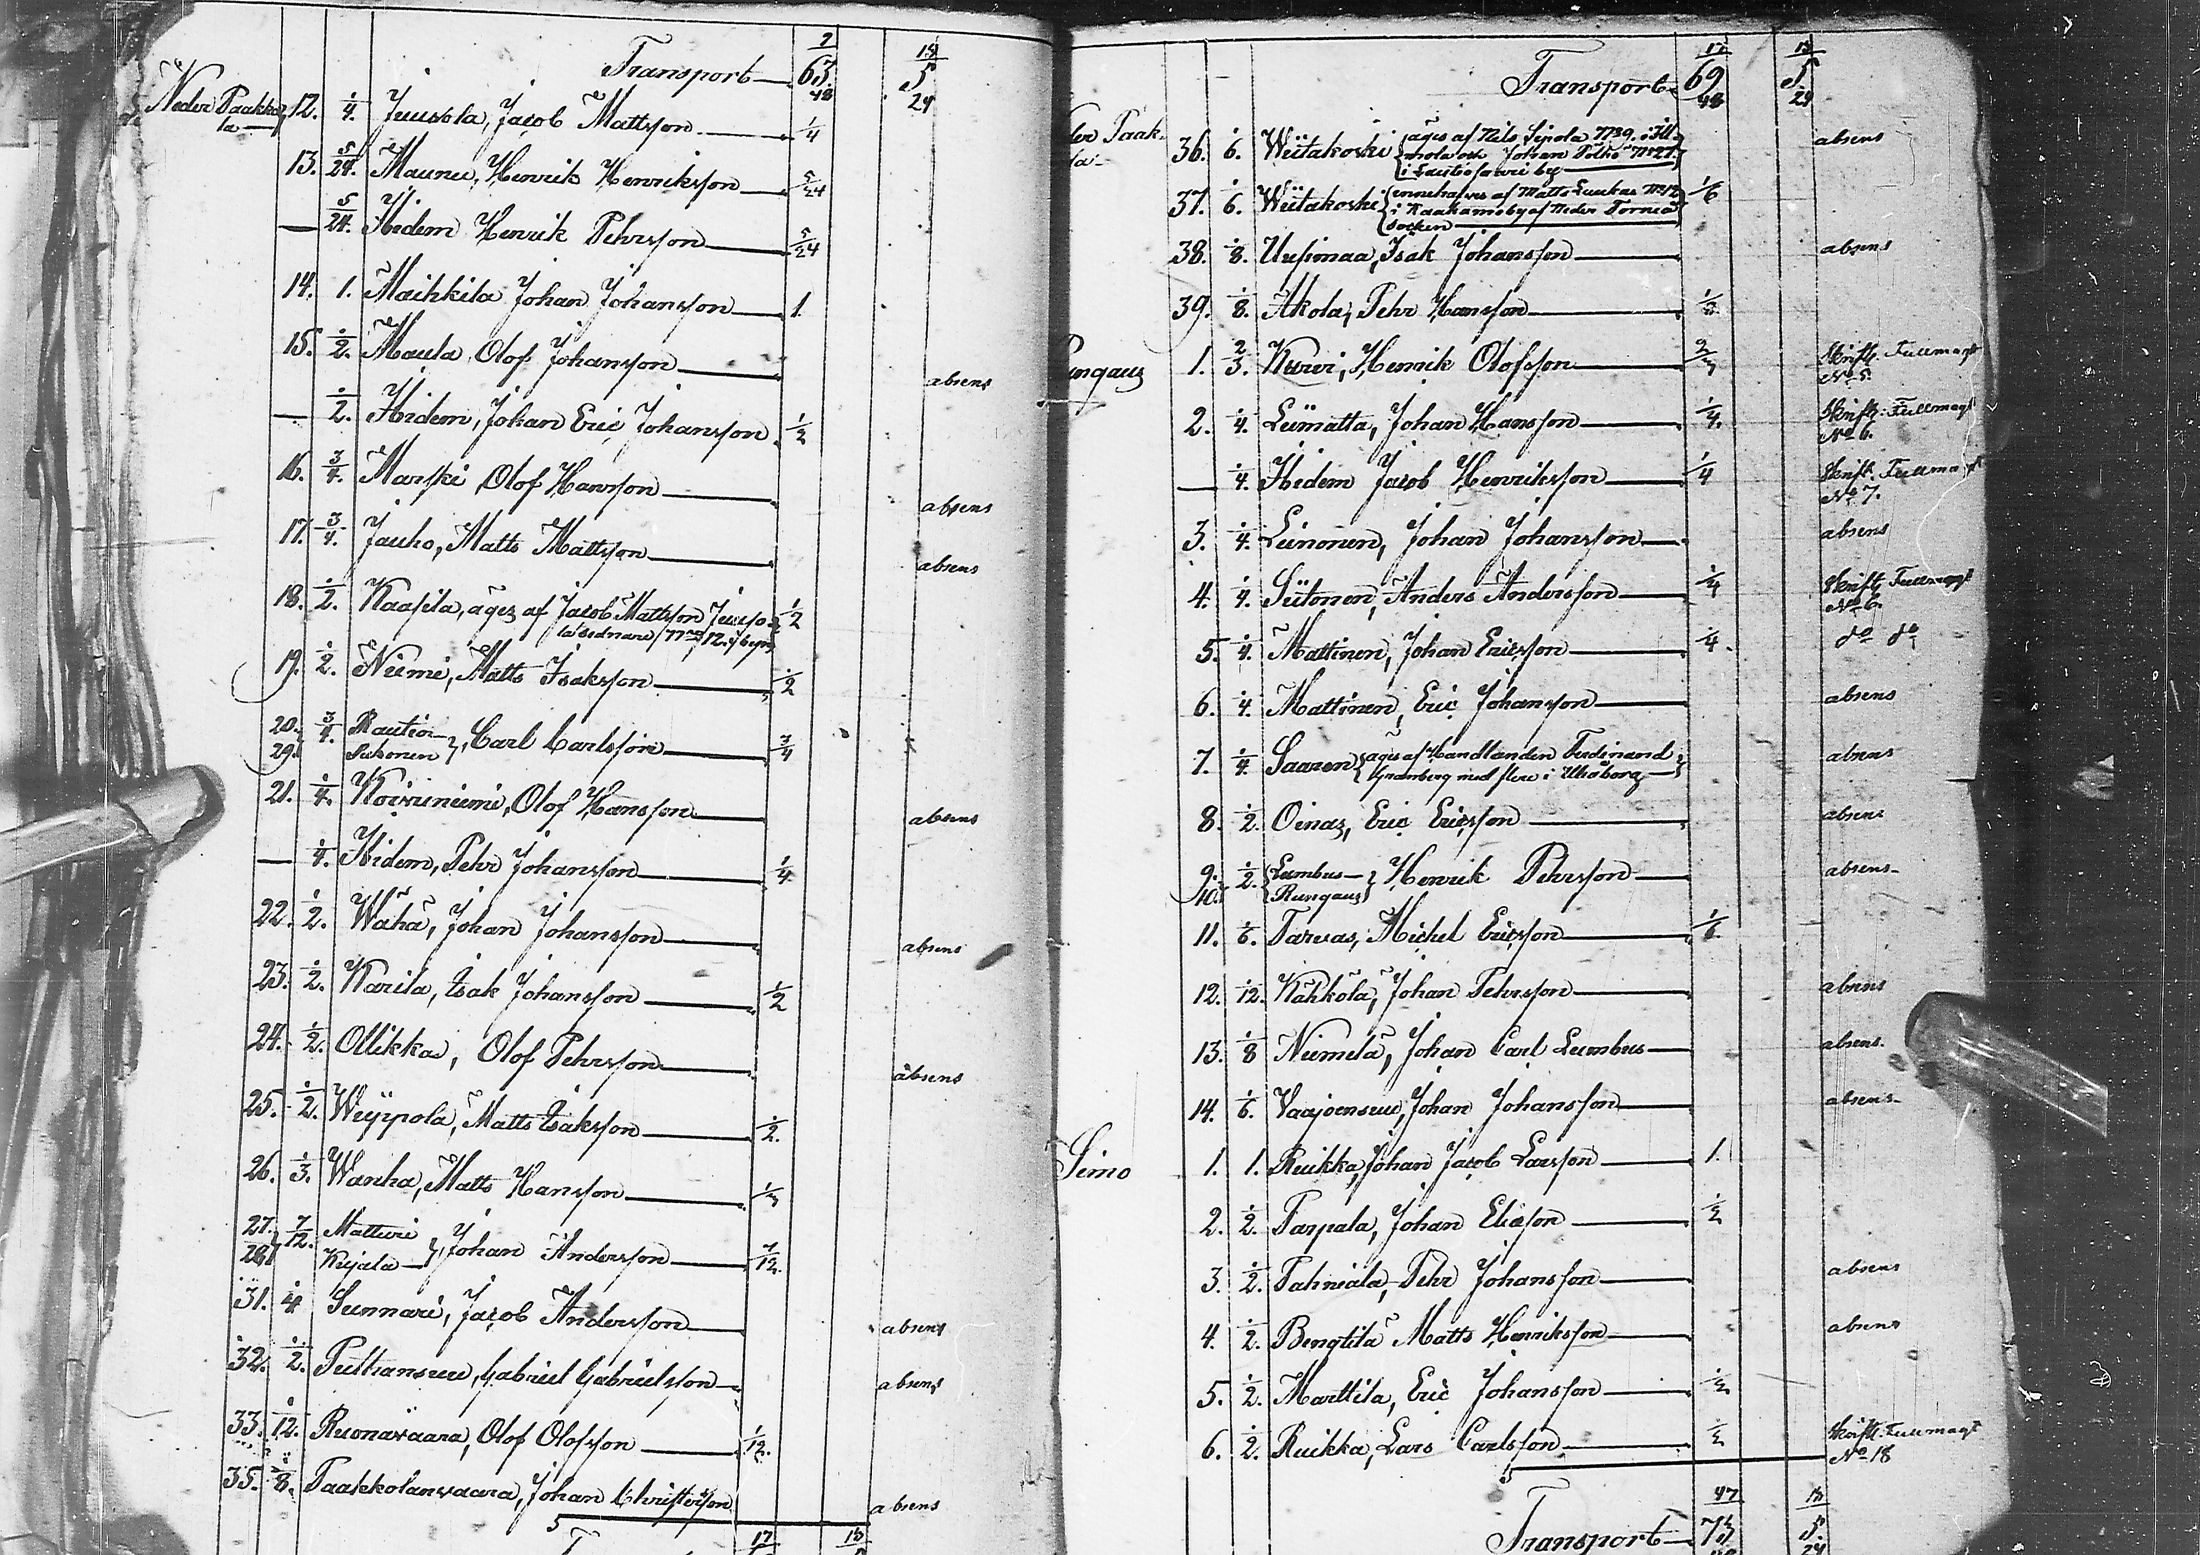 Transport — 63 7/48 5 15/24
Neder Paakkola 12. 1/4. Juusola, Jacob Mattsson 1/4
13. 5/24. Maunu, Henrik Henriksson 5/24
— 5/24. Ibidem Henrik Pehrsson 5/24
14. 1. Maihkila Johan Johansson 1.
15. 1/2. Maula Olof Johansson absens
— 1/2. Ibidem, Johan Eric Johansson 1/2
16. 3/4. Marski Olof Hansson absens
17. 3/4. Jauho, Matts Mattsson absens
18. 1/2. Kaasila, äges af Jacob Mattsson Juuso- 1/2
la bednare N:o 12. i byn
19. 1/2. Niemi, Matts Isaksson 1/2
20. 29. 3/4. Rautio Carl Carlsson 3/4
21. 1/4. Koiruniemi, Olof Hansson absens
— 1/4. Ibidem, Pehr Johansson 1/4
22. 1/2. Wähä, Johan Johansson absens
23. 1/2. Karila, Isak Johansson 1/2
24. 1/2. Ollikka, Olof Pehrsson absens
25. 1/2. Weyppola, Matts Isaksson 1/2.
26. 1/3. Wanha, Matts Hansson 1/3
27. 28. 7/12. Matturi
Kujala Johan Andersson 7/12.
31. 1/4 Sunnari, Jacob Andersson absens
32. 1/2. Putkansuu, Gabriel Gabrielsson absens
33. 1/12. Ruonavaara, Olof Olofsson 1/12.
35. 1/8. Paakkolanvaara, Johan Christersson absens
17 15
Transport 69 17/48 5 15/24
36. 1/6. Wiitakoski äges af Nils Sipola N:o 9. i
och Johan N:o 27.
i by absens
37. 1/6. Wiitakoski innehafves af Matts Luukas N:o 12 1/6
i Kaakamo by af Neder Torneå
Socken
38. 1/8. Uusimaa, Isak Johansson absens
39. 1/8. Akola, Pehr Hansson 1/8
Rungaus 1. 2/3. Kurvi, Henrik Olofsson 2/3 Skriftl. Fullmagt
No 5.
2. 1/4. Liimatta, Johan Hansson 1/4. Skriftl. Fullmagt
No 6.
— 1/4. Ibidem Jacob Henriksson 1/4 Skriftl. Fullmagt
No 7.
3. 1/4. Leinonen, Johan Johansson absens
4. 1/4. Siitonen, Anders Andersson 1/4 Skriftl. Fullmagt
No 6.
5. 1/4. Mattinen, Johan Ericsson 1/4. do do
6. 1/4. Mattinen, Eric Johansson absens
7. 1/4. Saaren äges af Handlanden Ferdinand
Granberg med flere i Uleåborg absens
8. 1/2. Oinas, Eric Ericsson absens
9. 10. 1/2. Lumbus
Rungaus Henrik Pehrsson absens
11. 1/6. Tarvas, Michel Ericsson 1/6.
12. 1/12. Kähkölä, Johan Pehrsson absens
13. 1/8 Niemelä, Johan Carl Lumbus absens
14. 1/6. Vaajoensuu, Johan Johansson absens
Simo 1. 1. Ruikka, Johan Jacob Larsson 1.
2. 1/2. Tarpala, Johan Eliasson 1/2
3. 1/2. Pahniala, Pehr Johansson absens
4. 1/2. Bengtila Matts Henriksson absens
5. 1/2. Marttila, Eric Johansson 1/2
6. 1/2. Ruikka, Lars Carlsson 1/2 Skriftl. Fullmagt
No 18
Transport — 73 47 5. 15/24